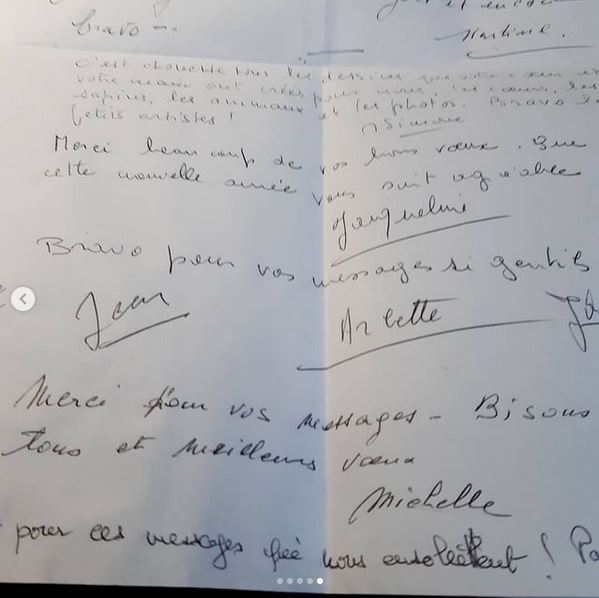 bravo -.
et encore
Martine.
c'est chouette tous les dessins que votre cœur et
votre main ont créés pour nous, les cœurs, les
sapins, les animaux et les photos. Bravo
petits artistes !
Simone
Merci beaucoup de vos bons vœux. Que
cette nouvelle année vous soit agréable
Jacqueline
Bravo pour vos messages si gentils
Jean
Arlette
Merci pour vos messages - Bisous
tous et meilleurs vœux
Michelle
pour ces messages qui nous !